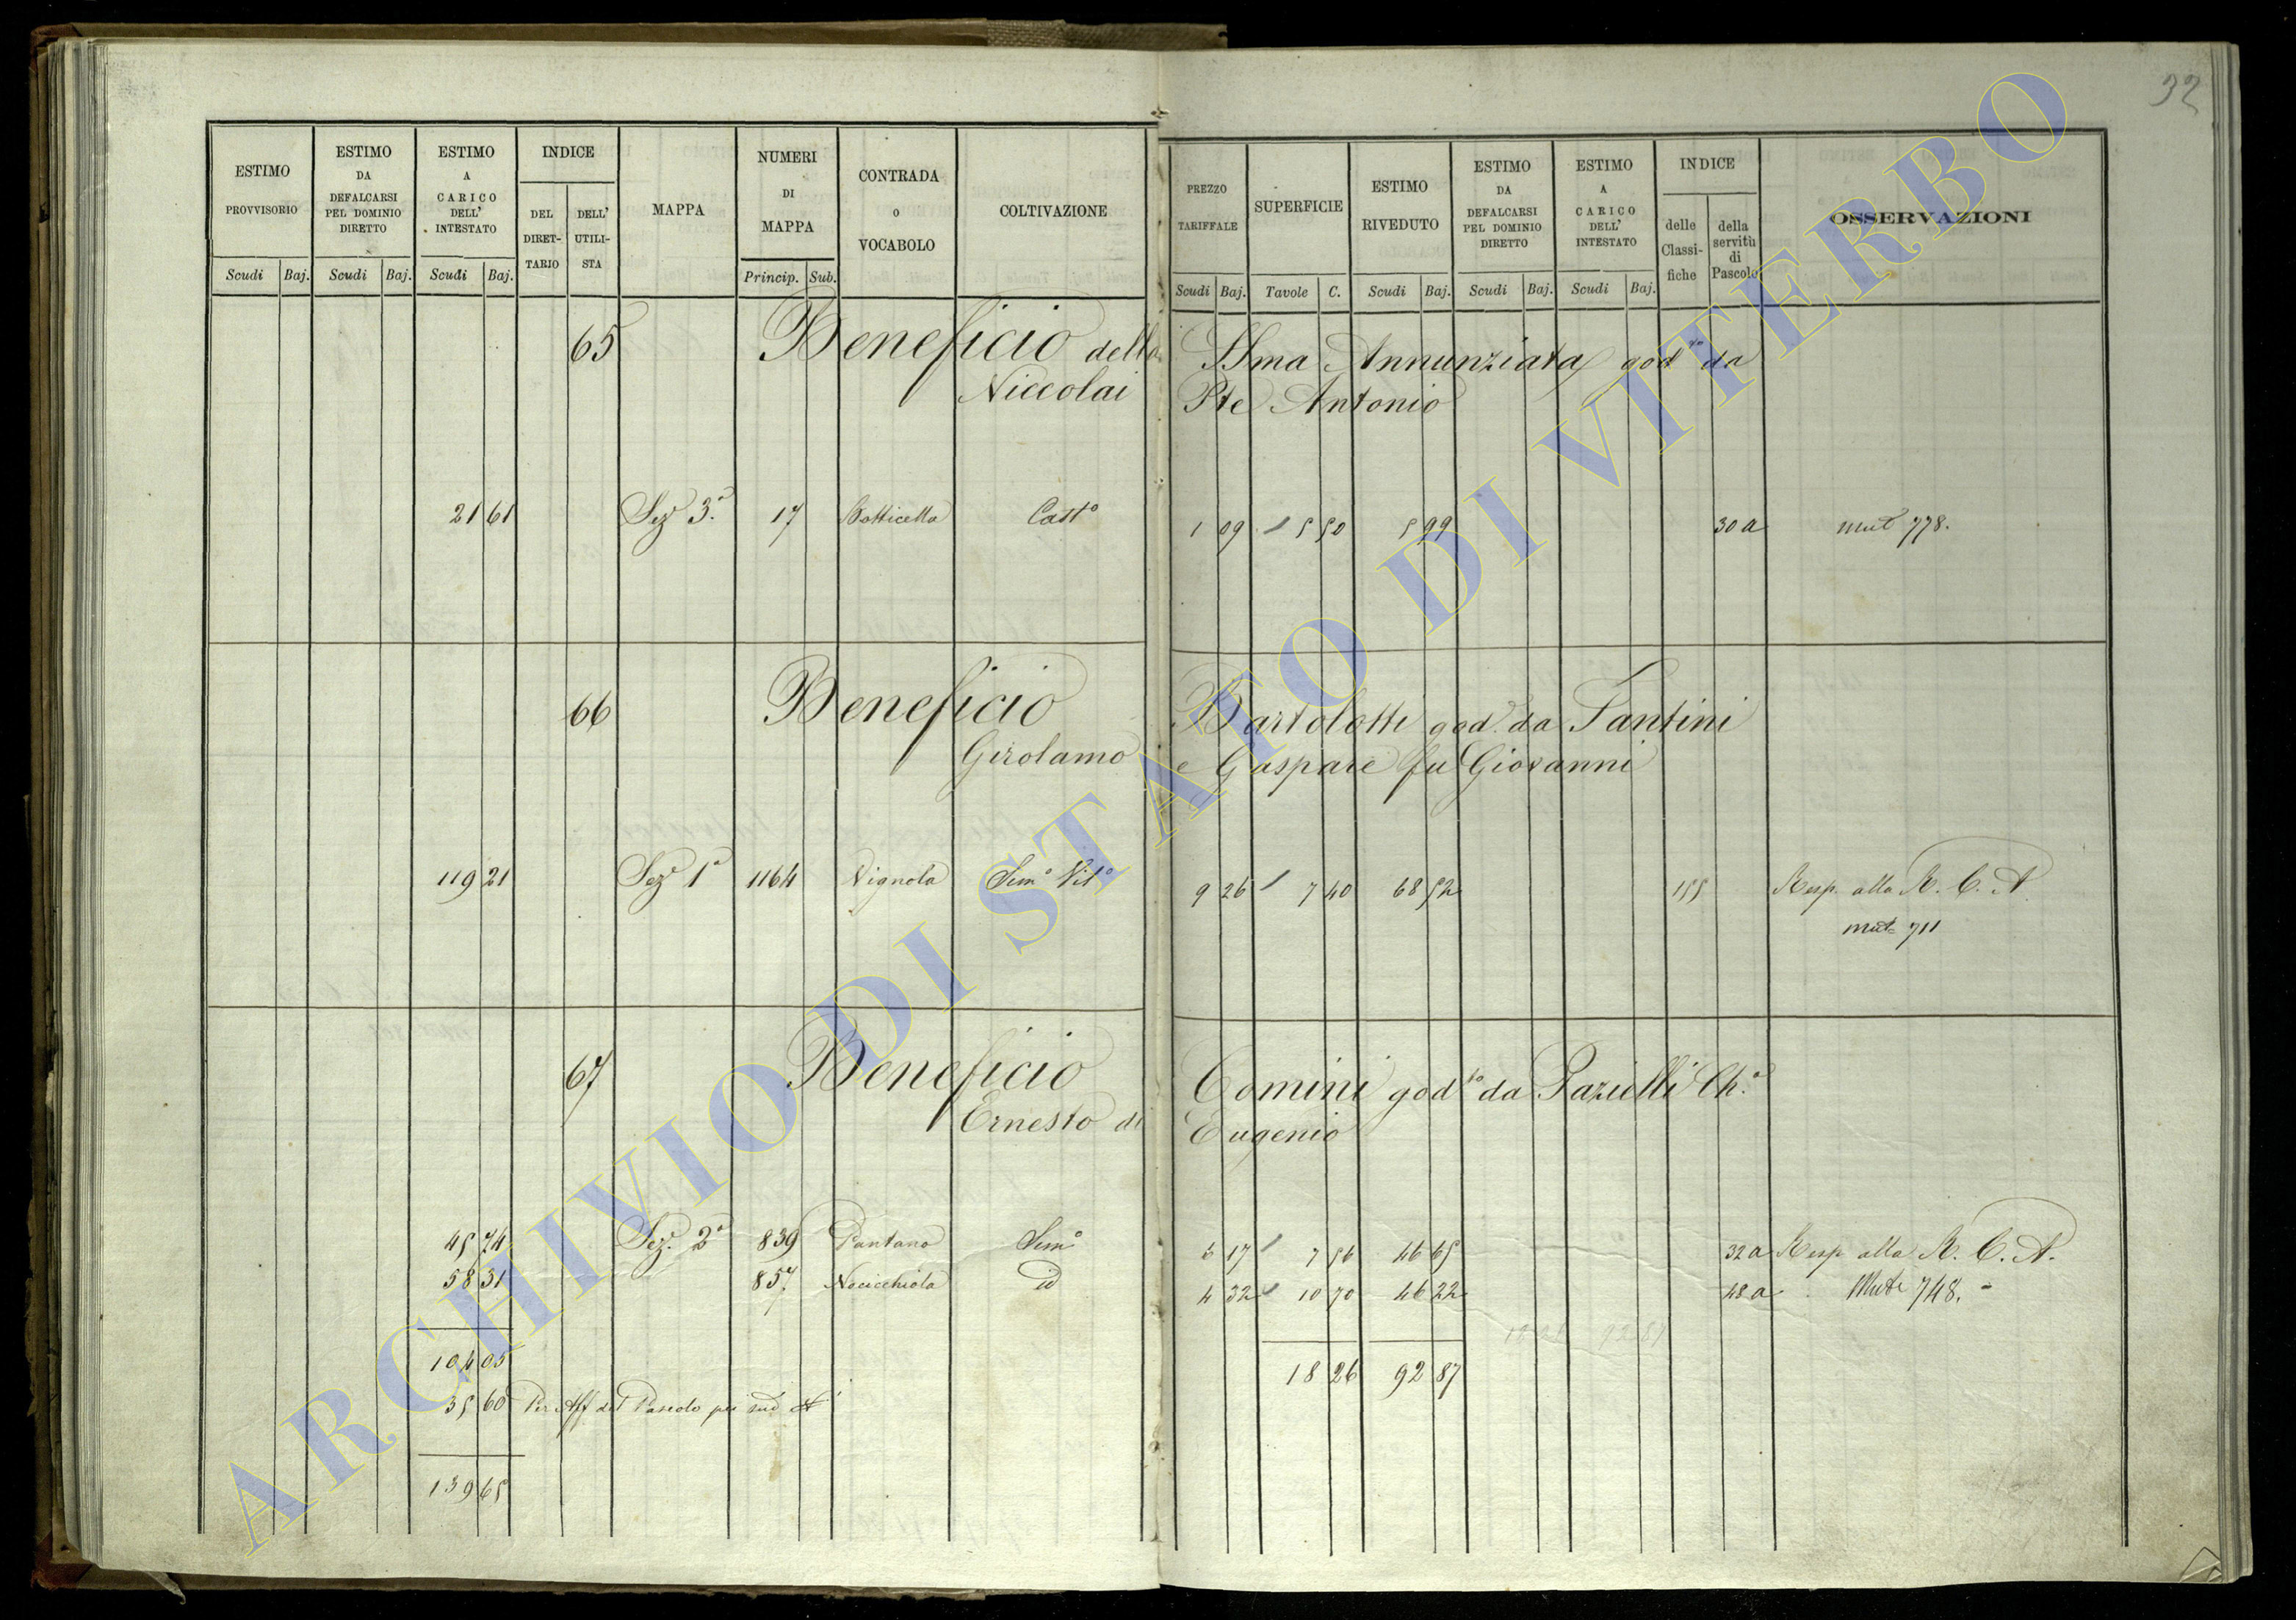 32
ESTIMO PROVVISORIO Scudi Baj.
ESTIMO DA DEFALCARSI PEL DOMINIO DIRETTO Scudi Baj.
ESTIMO A CARICO DELL' INTESTATO Scudi Baj.
INDICE DEL DIRETTARIO DELL' UTILISTA
MAPPA
NUMERI DI MAPPA Princip. Sub.
CONTRADA O VOCABOLO
COLTIVAZIONE
PREZZO TARIFFALE Scudi Baj.
SUPERFICIE Tavole C.
ESTIMO RIVEDUTO Scudi Baj.
ESTIMO DA DEFALCARSI PEL DOMINIO DIRETTO Scudi Baj.
ESTIMO A CARICO DELL' INTESTATO Scudi Baj.
INDICE delle Classifiche della servitù di Pascolo
OSSERVAZIONI
65 Beneficio della SSma Annunziata god.to da
Niccolai Pte Antonio
21 61 Sez.e 3.a 17 Botticella Cast.o 1 09 5 50 5 99 30 a mut 778.
66 Beneficio Bartolotti god. da Fantini
Girolamo e Gaspare fu Giovanni
119 21 Sez.e 1.a 1164 Vignola Sem.o Vit.o 9 26 7 40 68 52 155 Resp. alla R. C. A.
mut. 711
67 Beneficio Comini god.to da Pazielli Ch.o
Ernesto di Eugenio
45 74 Sez. 2.a 839 Pantano Sem.o 6 17 7 56 46 65 32 a Resp alla R. C. A.
58 31 857 Nocicchiola id 4 32 10 70 46 22 48 a Mut. 748.
18 26 92 87
104 05 18 26 92 87
35 60 Per Aff del Pascolo pei sud N.i
139 65
ARCHIVIO DI STATO DI VITERBO